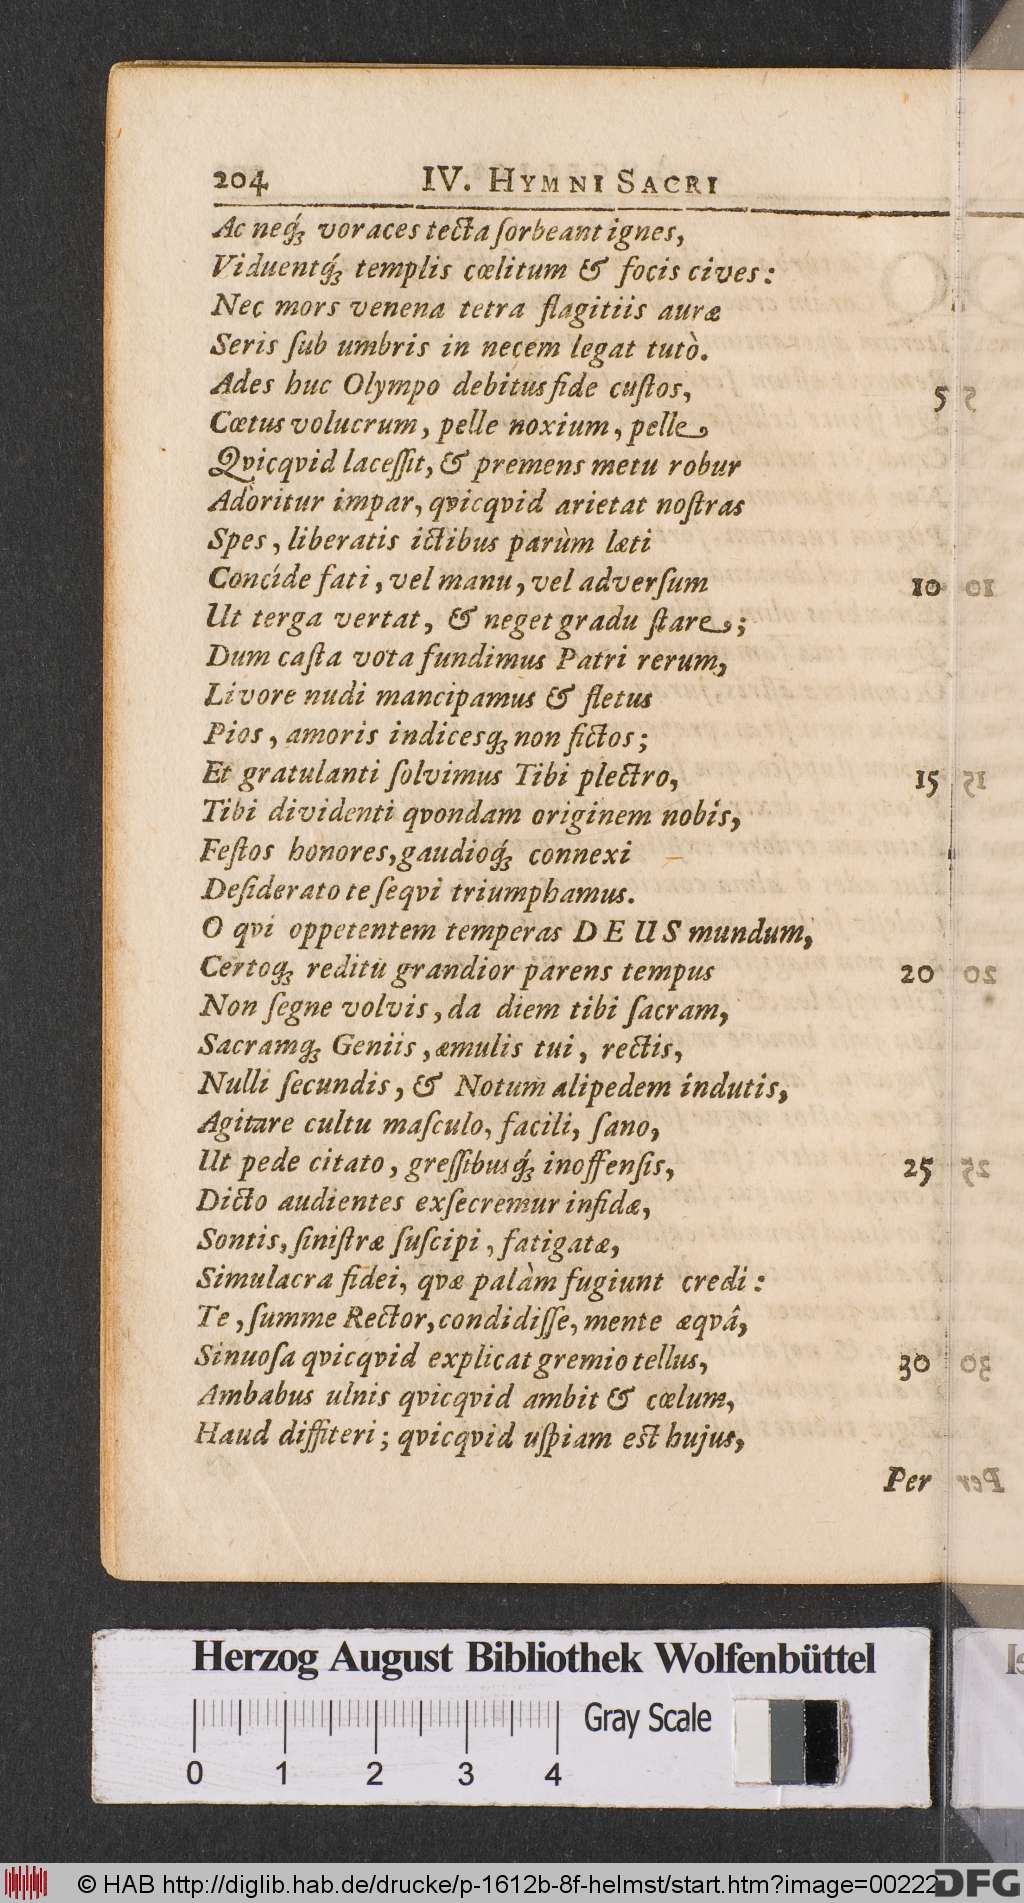 204 IV. HYMNI SACRI
Ac neq́ꝫ voraces tecta ſorbeant ignes,
Viduentq́ꝫ templis cœlitum & focis cives:
Nec mors venena tetra flagitiis auræ
Seris ſub umbris in necem legat tutò.
Ades huc Olympo debitus fide cuſtos, 5
Cœtus volucrum, pelle noxium, pelle
Qvicqvid laceſſit, & premens metu robur
Adòritur impar, qvicqvid arietat noſtras
Spes, liberatis ictibus parùm læti
Concíde fati, vel manu, vel adverſum 10
Ut terga vertat, & neget gradu ſtare;
Dum caſta vota fundimus Patri rerum,
Livore nudi mancipamus & fletus
Pios, amoris indicesqꝫ non fictos;
Et gratulanti ſolvimus Tibi plectro, 15
Tibi dividenti qvondam originem nobis,
Feſtos honores, gaudioq́ꝫ connexi
Deſiderato te ſeqvi triumphamus.
O qvi oppetentem temperas DEUS mundum,
Certoqꝫ reditu grandior parens tempus 20
Non ſegne volvis, da diem tibi ſacram,
Sacramqꝫ Geniis, æmulis tui, rectis,
Nulli ſecundis, & Notum alipedem indutis,
Agitare cultu maſculo, facili, ſano,
Ut pede citato, greſſibusq́ꝫ inoffenſis, 25
Dicto audientes exſecremur infidæ,
Sontis, ſiniſtræ ſuſcipi, fatigatæ,
Simulacra fidei, qvæ palàm fugiunt credi:
Te, ſumme Rector, condidiſſe, mente æqvâ,
Sinuoſa qvicqvid explicat gremio tellus, 30
Ambabus ulnis qvicqvid ambit & cœlum,
Haud diffiteri; qvicqvid uſpiam eſt hujus,
Per
Herzog August Bibliothek Wolfenbüttel
Gray Scale
0 1 2 3 4
© HAB http://diglib.hab.de/drucke/p-1612b-8f-helmst/start.htm?image=00222
DFG